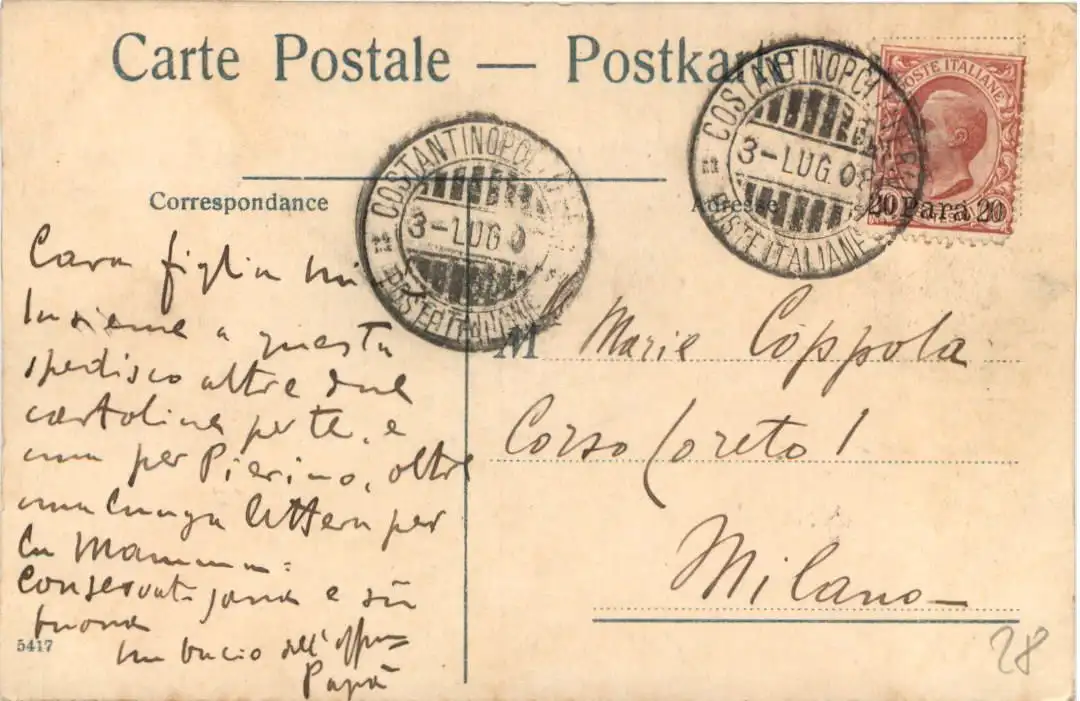 Carte Postale — Postkarte
POSTE ITALIANE
20 Para 20
COSTANTINOPOLI
3-LUG 09
POSTE ITALIANE
COSTANTINOPOLI
3-LUG 0
POSTE ITALIANE
Correspondance
Adresse
Cara figlia mi
Insieme a questa
spedisco altre due
cartoline per te, e
una per Pierino, oltre
una lunga lettera per
la Mamma:
Conservati sana e sii
buona
Un bacio dell'
Papà
5417
M Marie Coppola
Corso Loreto 1
Milano
28